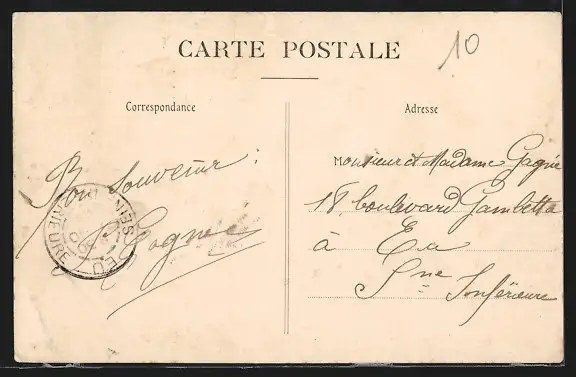 CARTE POSTALE
10
Correspondance
Adresse
Bon souvenir :
Monsieur et Madame Gagné
18, boulevard Gambetta
à Eu
Sne Inférieure
EU
SEINE
RIEURE